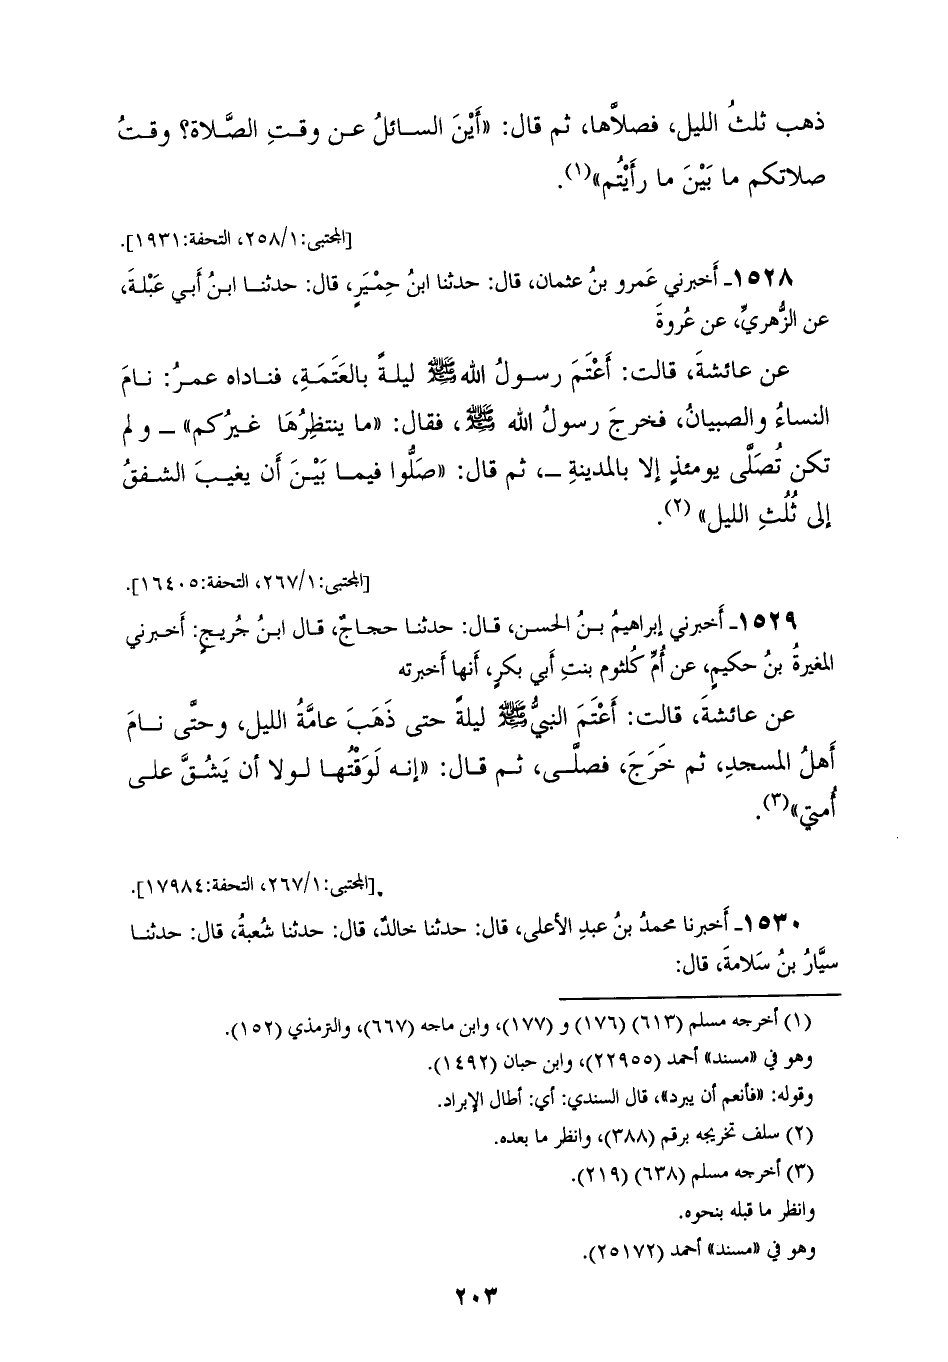 ذهب ثلثُ الليل، فصلاَّها، ثم قال: «أَيْنَ السائلُ عن وقتِ الصَّلاة؟ وقتُ
صلاتكم ما بَيْنَ ما رأَيْتُم»(١).
[المجتبى: ٢٥٨/١، التحفة: ١٩٣١].
١٥٢٨- أَخبرني عَمرو بنُ عثمان، قال: حدثنا ابنُ حِمْيَرٍ، قال: حدثنا ابنُ أَبي عَبْلةَ،
عن الزُّهريِّ، عن عُروةَ
عن عائشةَ، قالت: أَعْتَمَ رسولُ الله ﷺ ليلةً بالعَتَمَةِ، فناداه عمرُ: نامَ
النساءُ والصبيانُ، فخرجَ رسولُ الله ﷺ، فقال: «ما ينتظِرُهَا غيرُكم» ــ ولم
تكن تُصَلَّى يومئذٍ إلا بالمدينةِ ــ، ثم قال: «صَلُّوا فيما بَيْنَ أَن يغيبَ الشفقُ
إلى ثُلُثِ الليل» (٢).
[المجتبى: ٢٦٧/١، التحفة: ١٦٤٠٥].
١٥٢٩- أَخبرني إبراهيمُ بنُ الحسن، قال: حدثنا حجاجٌ، قال ابنُ جُريجٍ: أَخبرني
المغيرةُ بنُ حكيمٍ، عن أُمِّ كُلثوم بنتِ أَبي بكرٍ، أَنها أَخبرته
عن عائشةَ، قالت: أَعْتَمَ النبيُّ ﷺ ليلةً حتى ذَهَبَ عامَّةُ الليل، وحتَّى نامَ
أَهلُ المسجدِ، ثم خَرَجَ، فصلَّى، ثم قال: «إنه لَوَقْتُها لولا أن يَشُقَّ على
أُمتي»(٣).
[المجتبى: ٢٦٧/١، التحفة: ١٧٩٨٤].
١٥٣٠- أَخبرنا محمدُ بنُ عبدِ الأعلى، قال: حدثنا خالدٌ، قال: حدثنا شُعبةُ، قال: حدثنا
سيَّارُ بنُ سَلامةَ، قال:
(١) أخرجه مسلم (٦١٣) (١٧٦) و (١٧٧)، وابن ماجه (٦٦٧)، والترمذي (١٥٢).
وهو في «مسند» أحمد (٢٢٩٥٥)، وابن حبان (١٤٩٢).
وقوله: «فأنعم أن يبرد»، قال السندي: أي: أطال الإبراد.
(٢) سلف تخريجه برقم (٣٨٨)، وانظر ما بعده.
(٣) أخرجه مسلم (٦٣٨) (٢١٩).
وانظر ما قبله بنحوه.
وهو في «مسند» أحمد (٢٥١٧٢).
٢٠٣